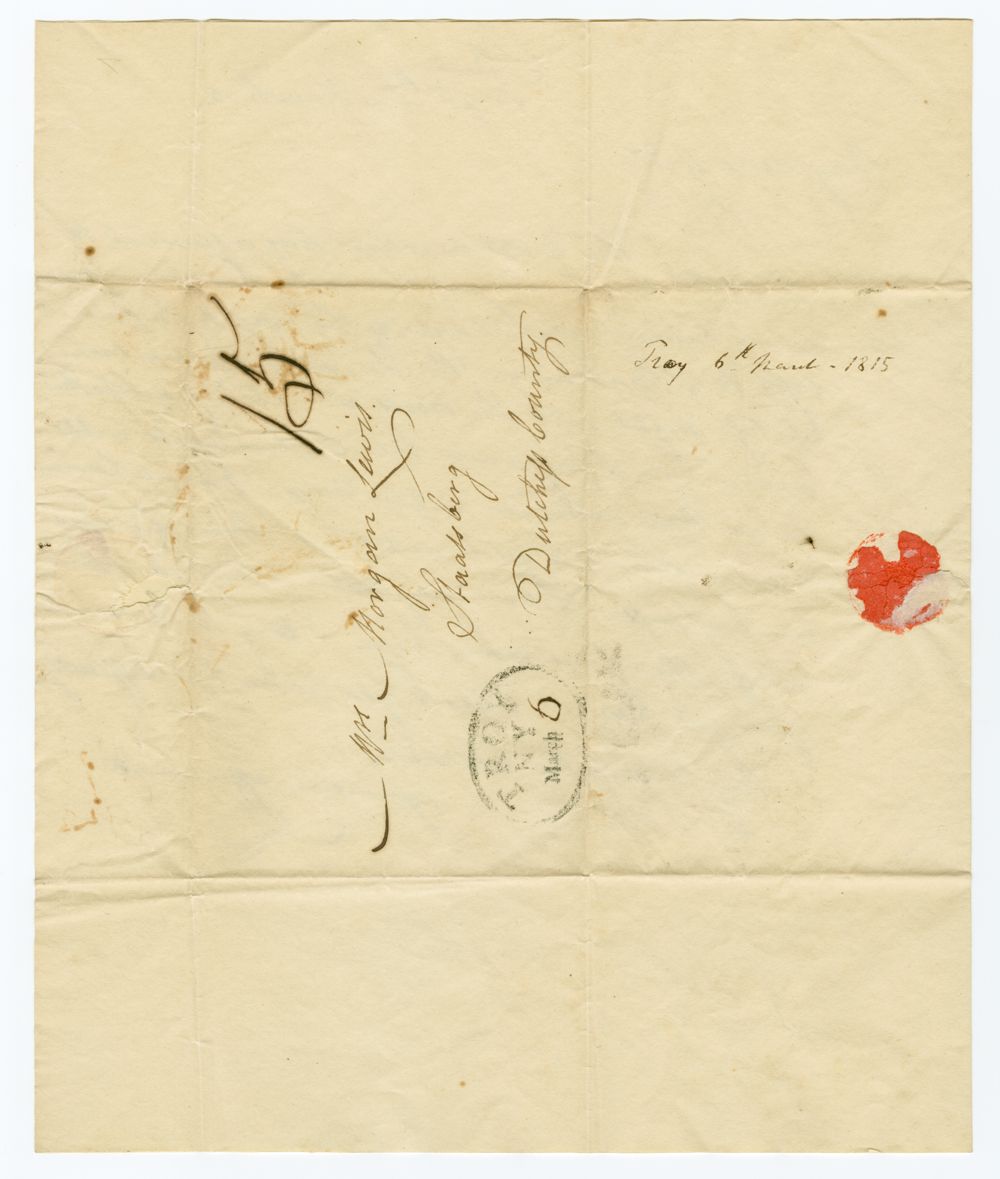 15
Mrs Morgan Lewis.
Staatsberg
Dutchess County.
TROY
NY
March 6
Troy 6th March - 1815